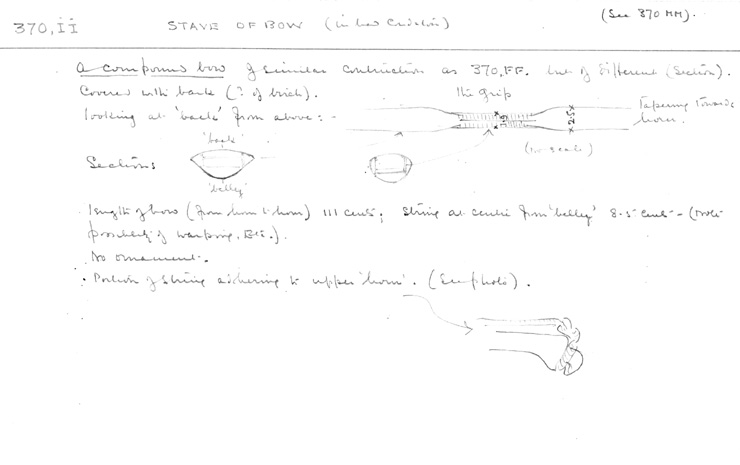 370,ii STAVE OF BOW (in bad Condition) (See 370 MM).
A compound bow of similar construction as 370,FF. but of different (section).
Covered with bark (? of birch).
The Grip
looking at 'back' from above:-
Tapering towards
horn.
2.5
(no scale)
'back'
Sections
'belly'
length of bow (from horn to horn) 111 cents; String at centre from 'belly' 8.5 cents - (note
probability of warping, Etc.).
No ornament.
Portion of string adhering to upper 'horn'. (See photo).